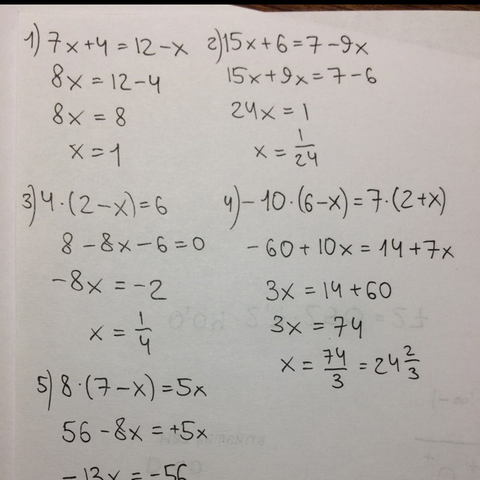 1) 7x+4=12-x
8x=12-4
8x=8
x=1
2) 15x+6=7-9x
15x+9x=7-6
24x=1
x=1/24
3) 4·(2-x)=6
8-8x-6=0
-8x=-2
x=1/4
4) -10·(6-x)=7·(2+x)
-60+10x=14+7x
3x=14+60
3x=74
x=74/3=24 2/3
5) 8·(7-x)=5x
56-8x=+5x
-13x=-56